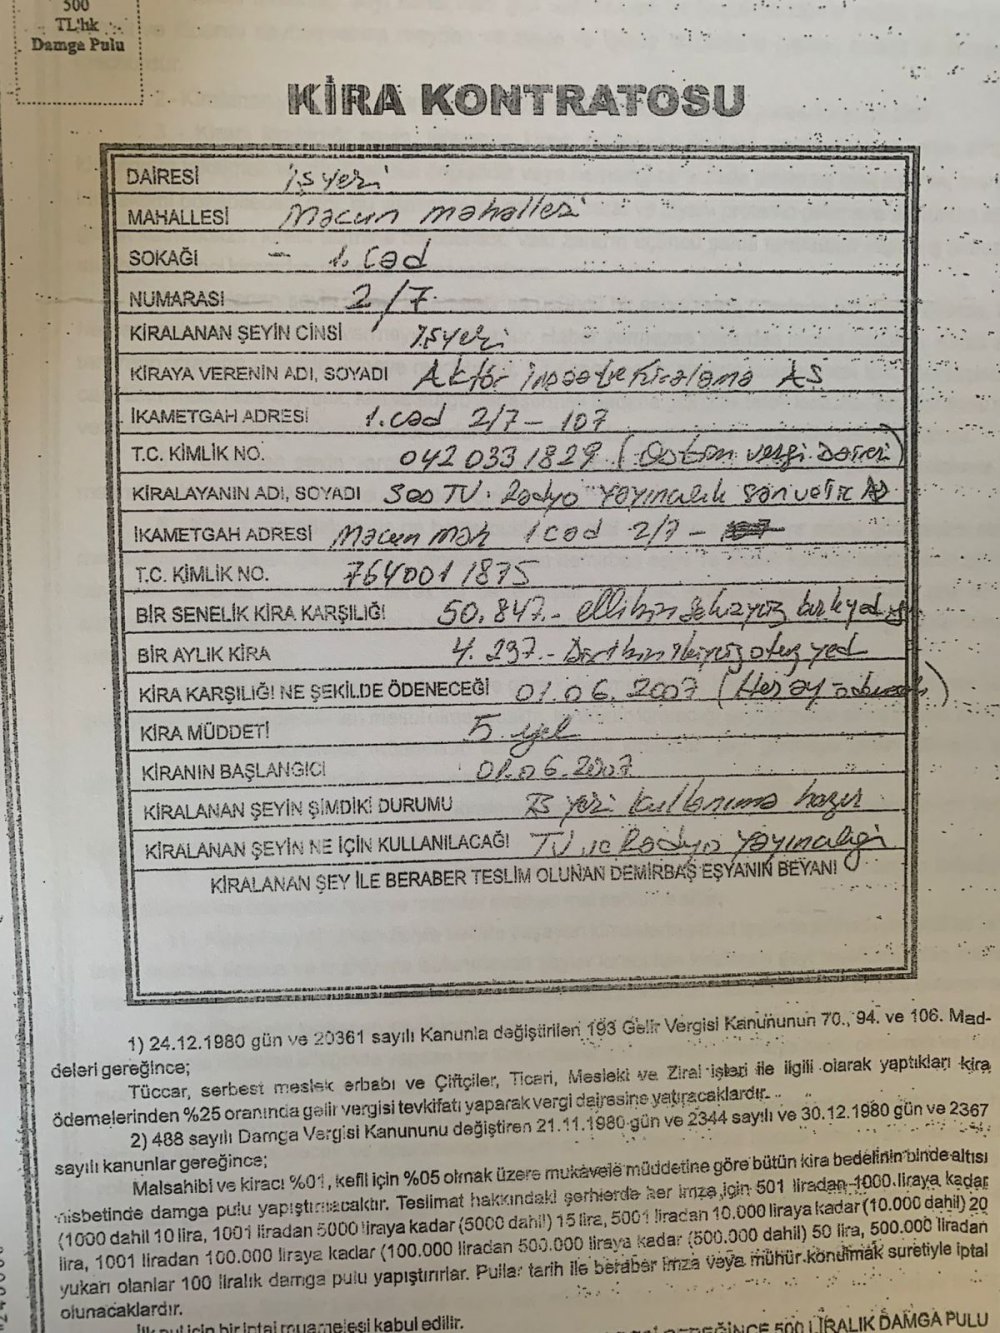 500
TL'lik
Damga Pulu
KİRA KONTRATOSU
DAİRESİ İşyeri
MAHALLESİ Macun mahallesi
SOKAĞI - 1. Cad
NUMARASI 2/7
KİRALANAN ŞEYİN CİNSİ İşyeri
KİRAYA VERENİN ADI, SOYADI Aktör İnşaat ve Kiralama AŞ
İKAMETGAH ADRESİ 1. cad 2/7 - 107
T.C. KİMLİK NO. 042 033 1829 (Ostim vergi Dairesi)
KİRALAYANIN ADI, SOYADI Ses TV. Radyo Yayıncılık San ve Tic AŞ
İKAMETGAH ADRESİ Macun mah 1 cad 2/7 -
T.C. KİMLİK NO. 764001 1875
BİR SENELİK KİRA KARŞILIĞI 50.847.- ellibin sekizyüz kırkyedi
BİR AYLIK KİRA 4.237.- Dörtbin ikiyüz otuz yedi
KİRA KARŞILIĞI NE ŞEKİLDE ÖDENECEĞİ 01.06.2007 (Her ay
KİRA MÜDDETİ 5 yıl
KİRANIN BAŞLANGICI 01.06.2007
KİRALANAN ŞEYİN ŞİMDİKİ DURUMU İş yeri kullanıma hazır
KİRALANAN ŞEYİN NE İÇİN KULLANILACAĞI TV ve Radyo Yayıncılığı
KİRALANAN ŞEY İLE BERABER TESLİM OLUNAN DEMİRBAŞ EŞYANIN BEYANI
1) 24.12.1980 gün ve 20361 sayılı Kanunla değiştirilen 193 Gelir Vergisi Kanununun 70., 94. ve 106. Mad-
deleri gereğince;
Tüccar, serbest meslek erbabı ve Çiftçiler, Ticari, Mesleki ve Zirai işleri ile ilgili olarak yaptıkları kira
ödemelerinden %25 oranında gelir vergisi tevkifatı yaparak vergi dairesine yatıracaklardır.
2) 488 sayılı Damga Vergisi Kanununu değiştiren 21.11.1980 gün ve 2344 sayılı ve 30.12.1980 gün ve 2367
sayılı kanunlar gereğince;
Malsahibi ve kiracı %01, kefil için %05 olmak üzere mukavele müddetine göre bütün kira bedelinin binde altısı
nisbetinde damga pulu yapıştırılacaktır. Teslimat hakkındaki şerhlerde her imza için 501 liradan 1000 liraya kadar
(1000 dahil 10 lira, 1001 liradan 5000 liraya kadar (5000 dahil) 15 lira, 5001 liradan 10.000 liraya kadar (10.000 dahil) 20
lira, 1001 liradan 100.000 liraya kadar (100.000 liradan 500.000 liraya kadar (500.000 dahil) 50 lira, 500.000 liradan
yukarı olanlar 100 liralık damga pulu yapıştırırlar. Pullar tarih ile beraber imza veya mühür konulmak suretiyle iptal
olunacaklardır.
İlk pul için bir iptal muamelesi kabul edilir.
GEREĞİNCE 500 LİRALIK DAMGA PULU